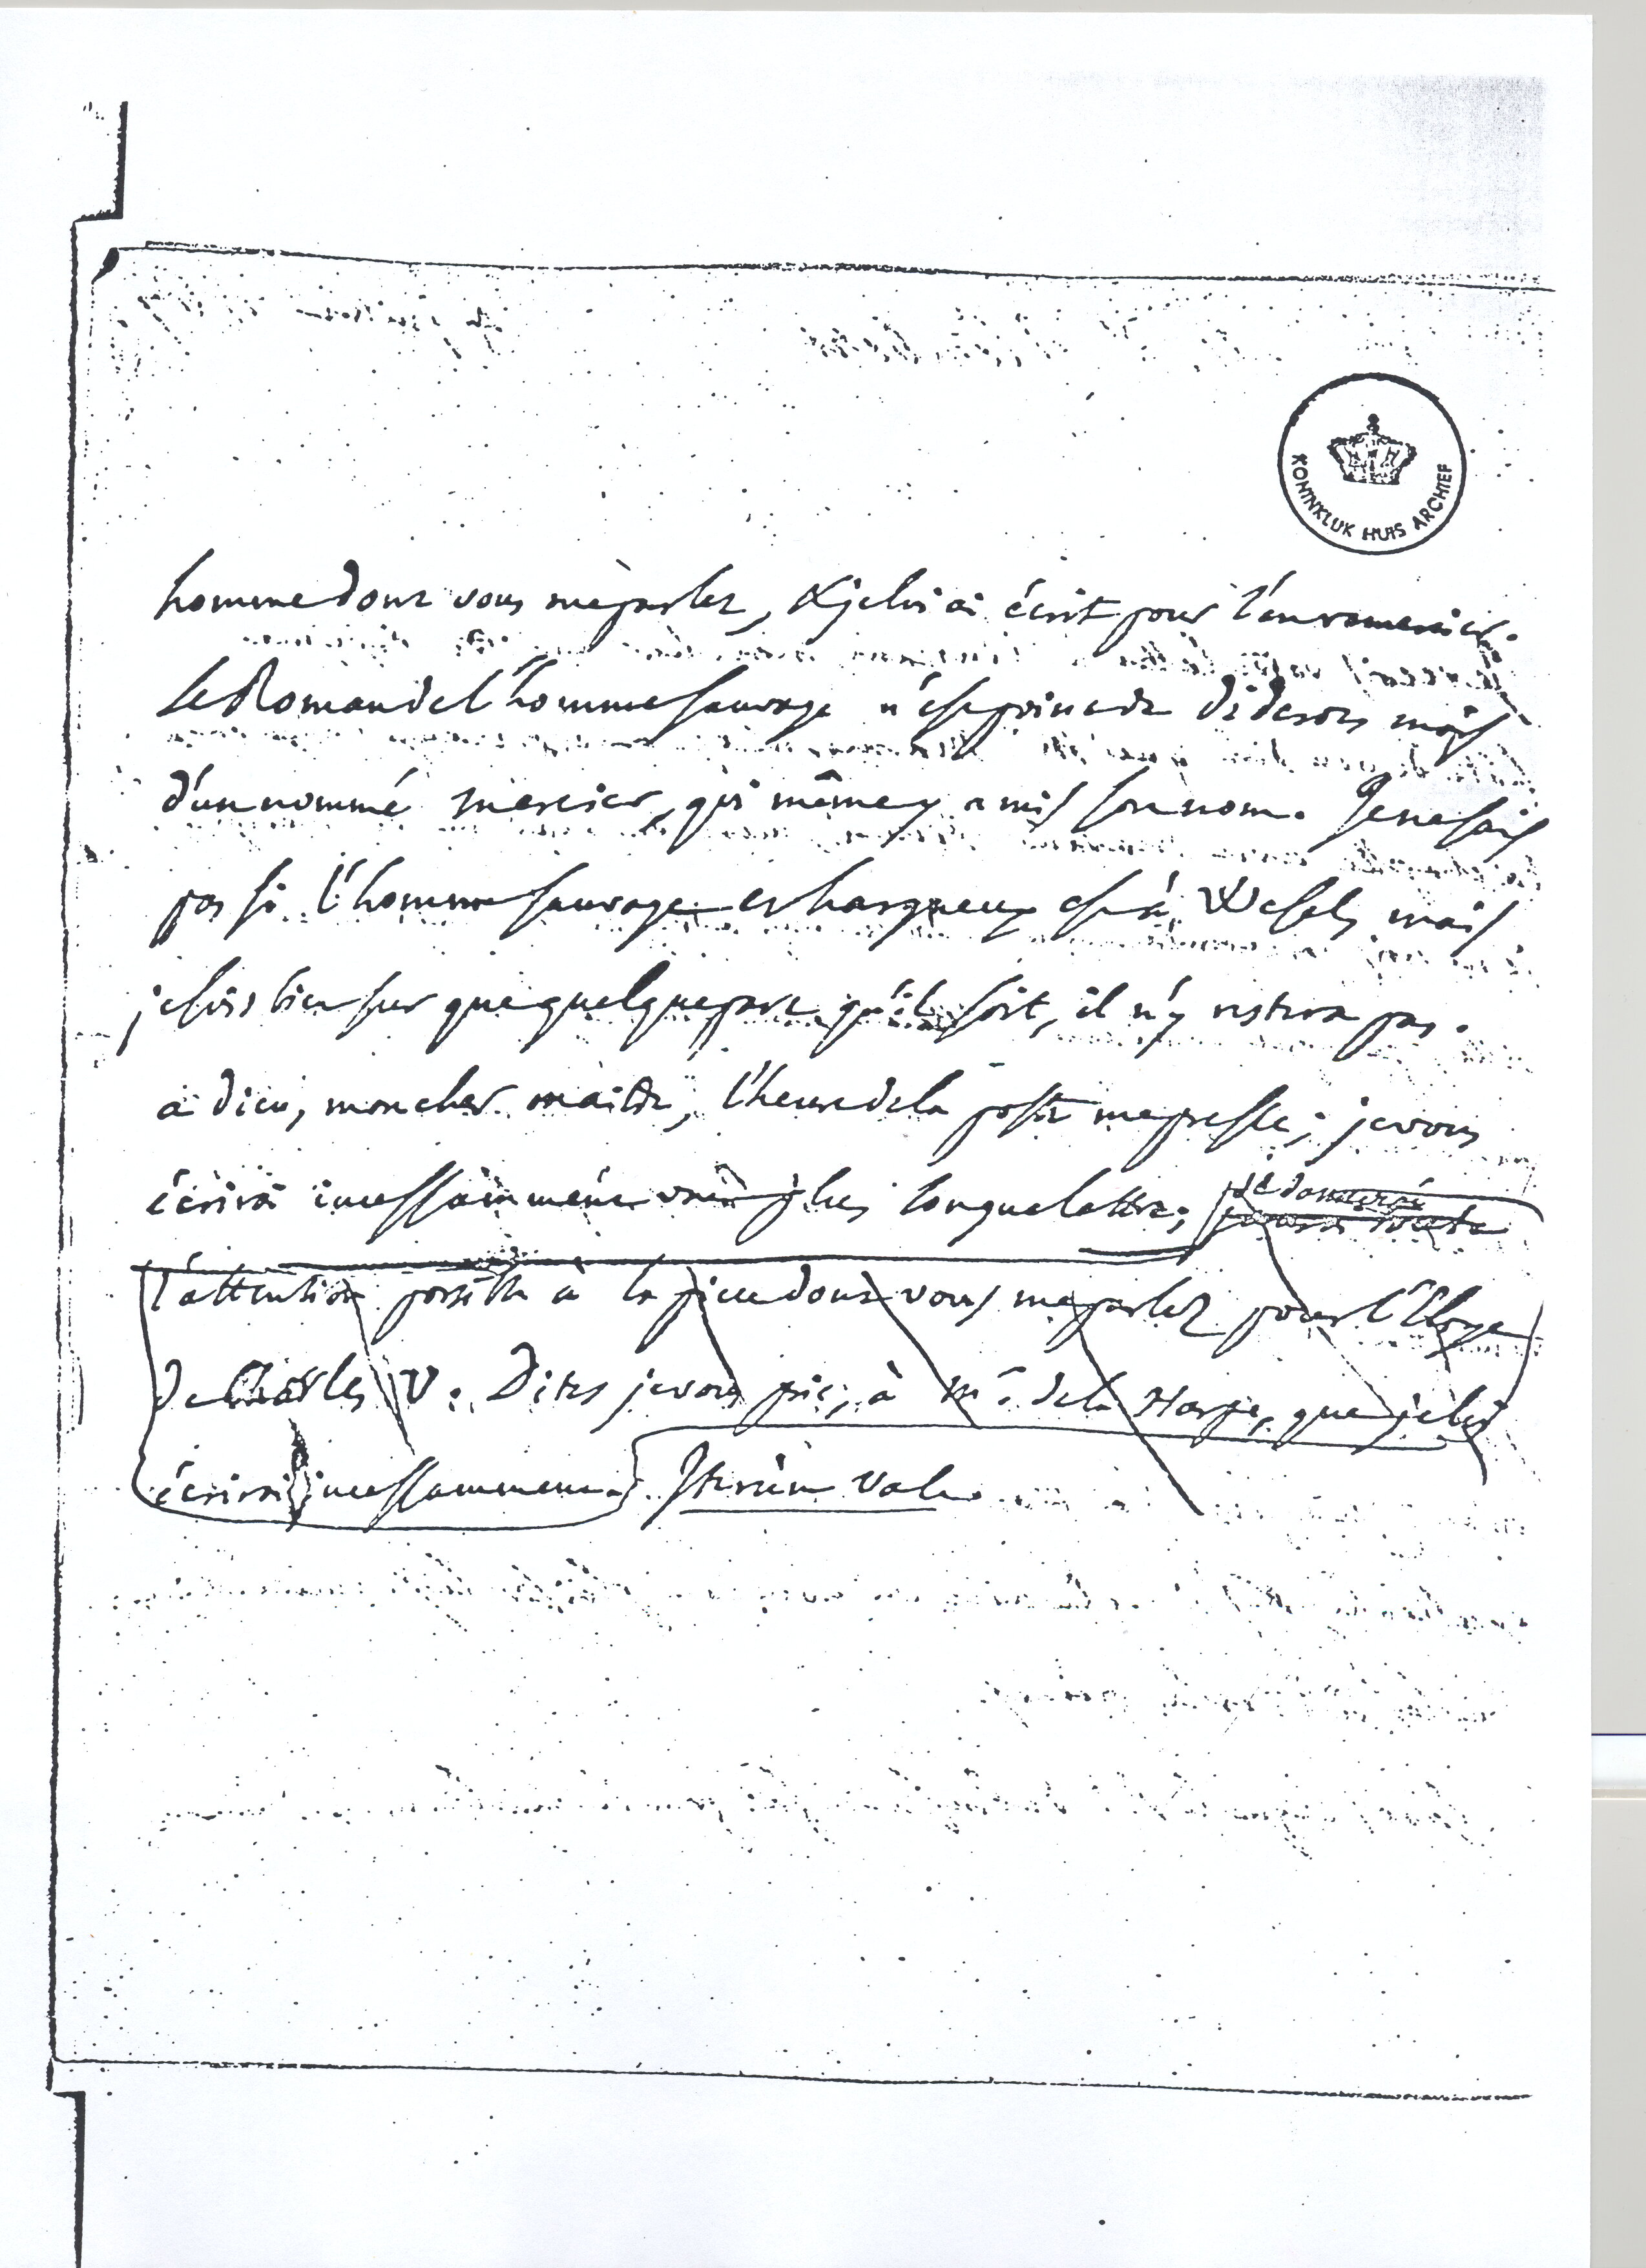 KONINKLIJK HUIS ARCHIEF
homme dont vous me parlez, & je lui ai écrit pour l'en remercier.
Le Roman de l'homme sauvage n'est point de Diderot, mais
d'un nommé mercier, qui même y a mis son nom. Je ne sais
pas si l'homme sauvage et hargneux est à Wesel, mais
je suis bien sur que quelque part qu'il soit, il n'y restera pas.
a dieu, mon cher maitre, l'heure de la poste me presse; je vous
écrirai incessamment une plus longue lettre;
je donnerai
toute
l'attention possible à la piece dont vous me parlez pour l'Eloge
de Charles V. Dites je vous prie, à Mr. de la Harpe, que je lui
écrirai incessamment. Iterùm vale.